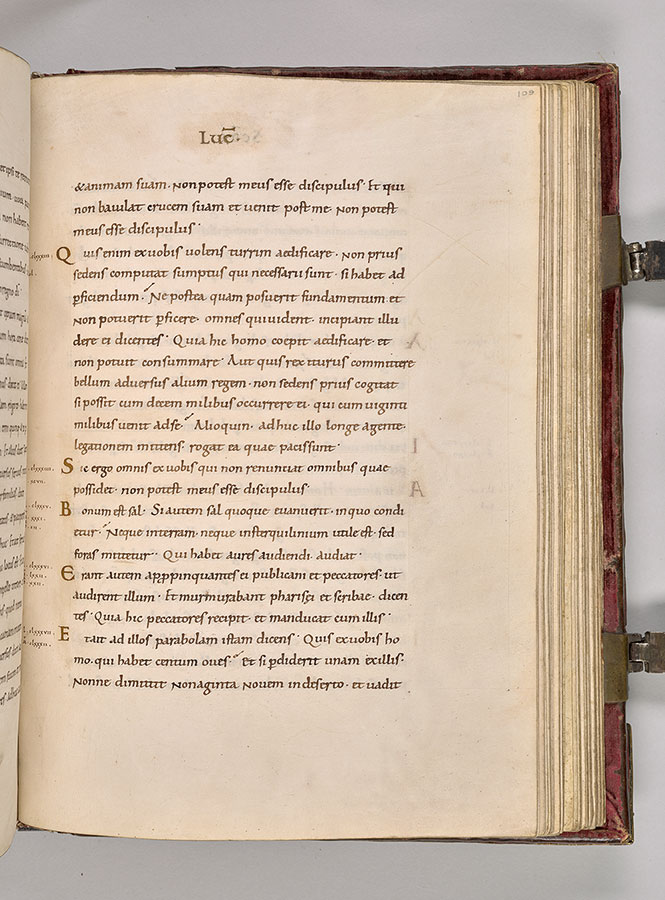 109
Luc̄.
&animam suam. Non potest meus esse discipulus. Et qui
non baiulat crucem suam et venit post me. Non potest
meus esse discipulus.
Quis enim ex vobis volens turrim aedificare. Non prius
sedens computat sumptus qui necessarii sunt. si habet ad
ꝑficiendum. Ne postea quam posuerit fundamentum et
Non potuerit ꝑficere. omnes qui vident. incipiant illu
dere ei dicentes. Quia hic homo coepit aedificare. et
non potuit consummare. Aut quis rex iturus committere
bellum adversus alium regem. non sedens prius cogitat
si possit cum decem milibus occurrere ei. qui cum viginti
milibus venit ad se. Alioquin. adhuc illo longe agente.
legationem mittens. rogat ea quae pacis sunt.
Sic ergo omnis ex vobis qui non renuntiat omnibus quae
possidet. non potest meus esse discipulus.
Bonum est sal. Si autem sal quoque evanuerit. in quo condi
etur. Neque in terram. neque in sterquilinium utile est. sed
foras mittetur. Qui habet aures audiendi. audiat.
Erant autem apꝓpinquantes ei publicani et peccatores. ut
audirent illum. Et murmurabant pharisei et scribae. dicen
tes. Quia hic peccatores recipit. et manducat cum illis.
Et ait ad illos parabolam istam dicens. Quis ex vobis ho
mo. qui habet centum oves. Et si ꝑdiderit unam ex illis.
Nonne dimittit Nonaginta Novem in deserto. et vadit